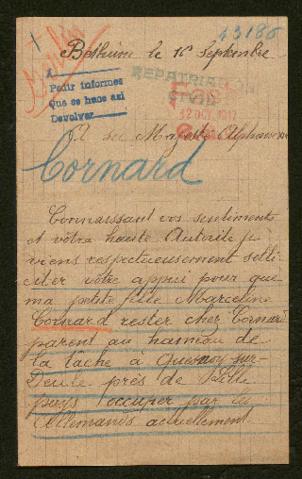 43180
Bethune le 16 Septembre
Pedir informes
Que se hace asi
Devolver
REPATRIACION
CIVIL
12 OCT. 1917
A sa Majesté Alphonse
Cornard
Connaissant vos sentiments
et votre haute Autorite je
viens respectueusement solli-
citer votre appui pour que
ma petite fille Marceline
Cornard rester chez Cornard
parent au hameau de
la tache à Quesnoy-sur-
Deule près de Lille
pays occuper par les
Allemands actuellement.